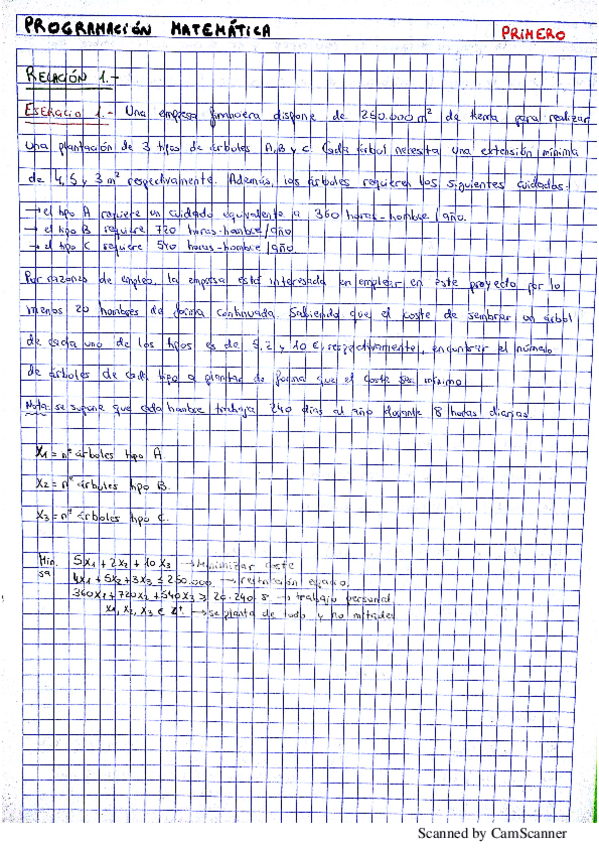 PROGRAMACIÓN MATEMÁTICA
PRIMERO
RELACIÓN 1.-
EJERCICIO 1.- Una empresa dispone de 250.000 m² de tierra para realizar
una plantación de 3 tipos de árboles A, B y C. Cada árbol necesita una extensión mínima
de 4, 5 y 3 m² respectivamente. Además, los árboles requieren los siguientes cuidados:
→ el tipo A requiere un cuidado equivalente a 360 horas-hombre/año.
→ el tipo B requiere 720 horas-hombre/año
→ el tipo C requiere 540 horas-hombre/año.
Por razones de empleo, la empresa está interesada en emplear en este proyecto por lo
menos 20 hombres de forma continuada. Sabiendo que el coste de sembrar un árbol
de cada uno de los tipos es de 5, 2 y 10 €, respectivamente, encontrar el número
de árboles de cada tipo a plantar de forma que el coste sea mínimo
Nota: se supone que cada hombre trabaja 240 días al año durante 8 horas diarias
X₁ = nº árboles tipo A
X₂ = nº árboles tipo B.
X₃ = nº árboles tipo C.
Min. 5X₁ + 2X₂ + 10X₃ → Minimizar coste
sa 4X₁ + 5X₂ + 3X₃ ≤ 250.000 → restricción espacio,
360X₁ + 720X₂ + 540X₃ ≥ 20·240·8 → trabajo personal
X₁, X₂, X₃ ∈ Z⁺ → se planta de todo y no mitades
Scanned by CamScanner